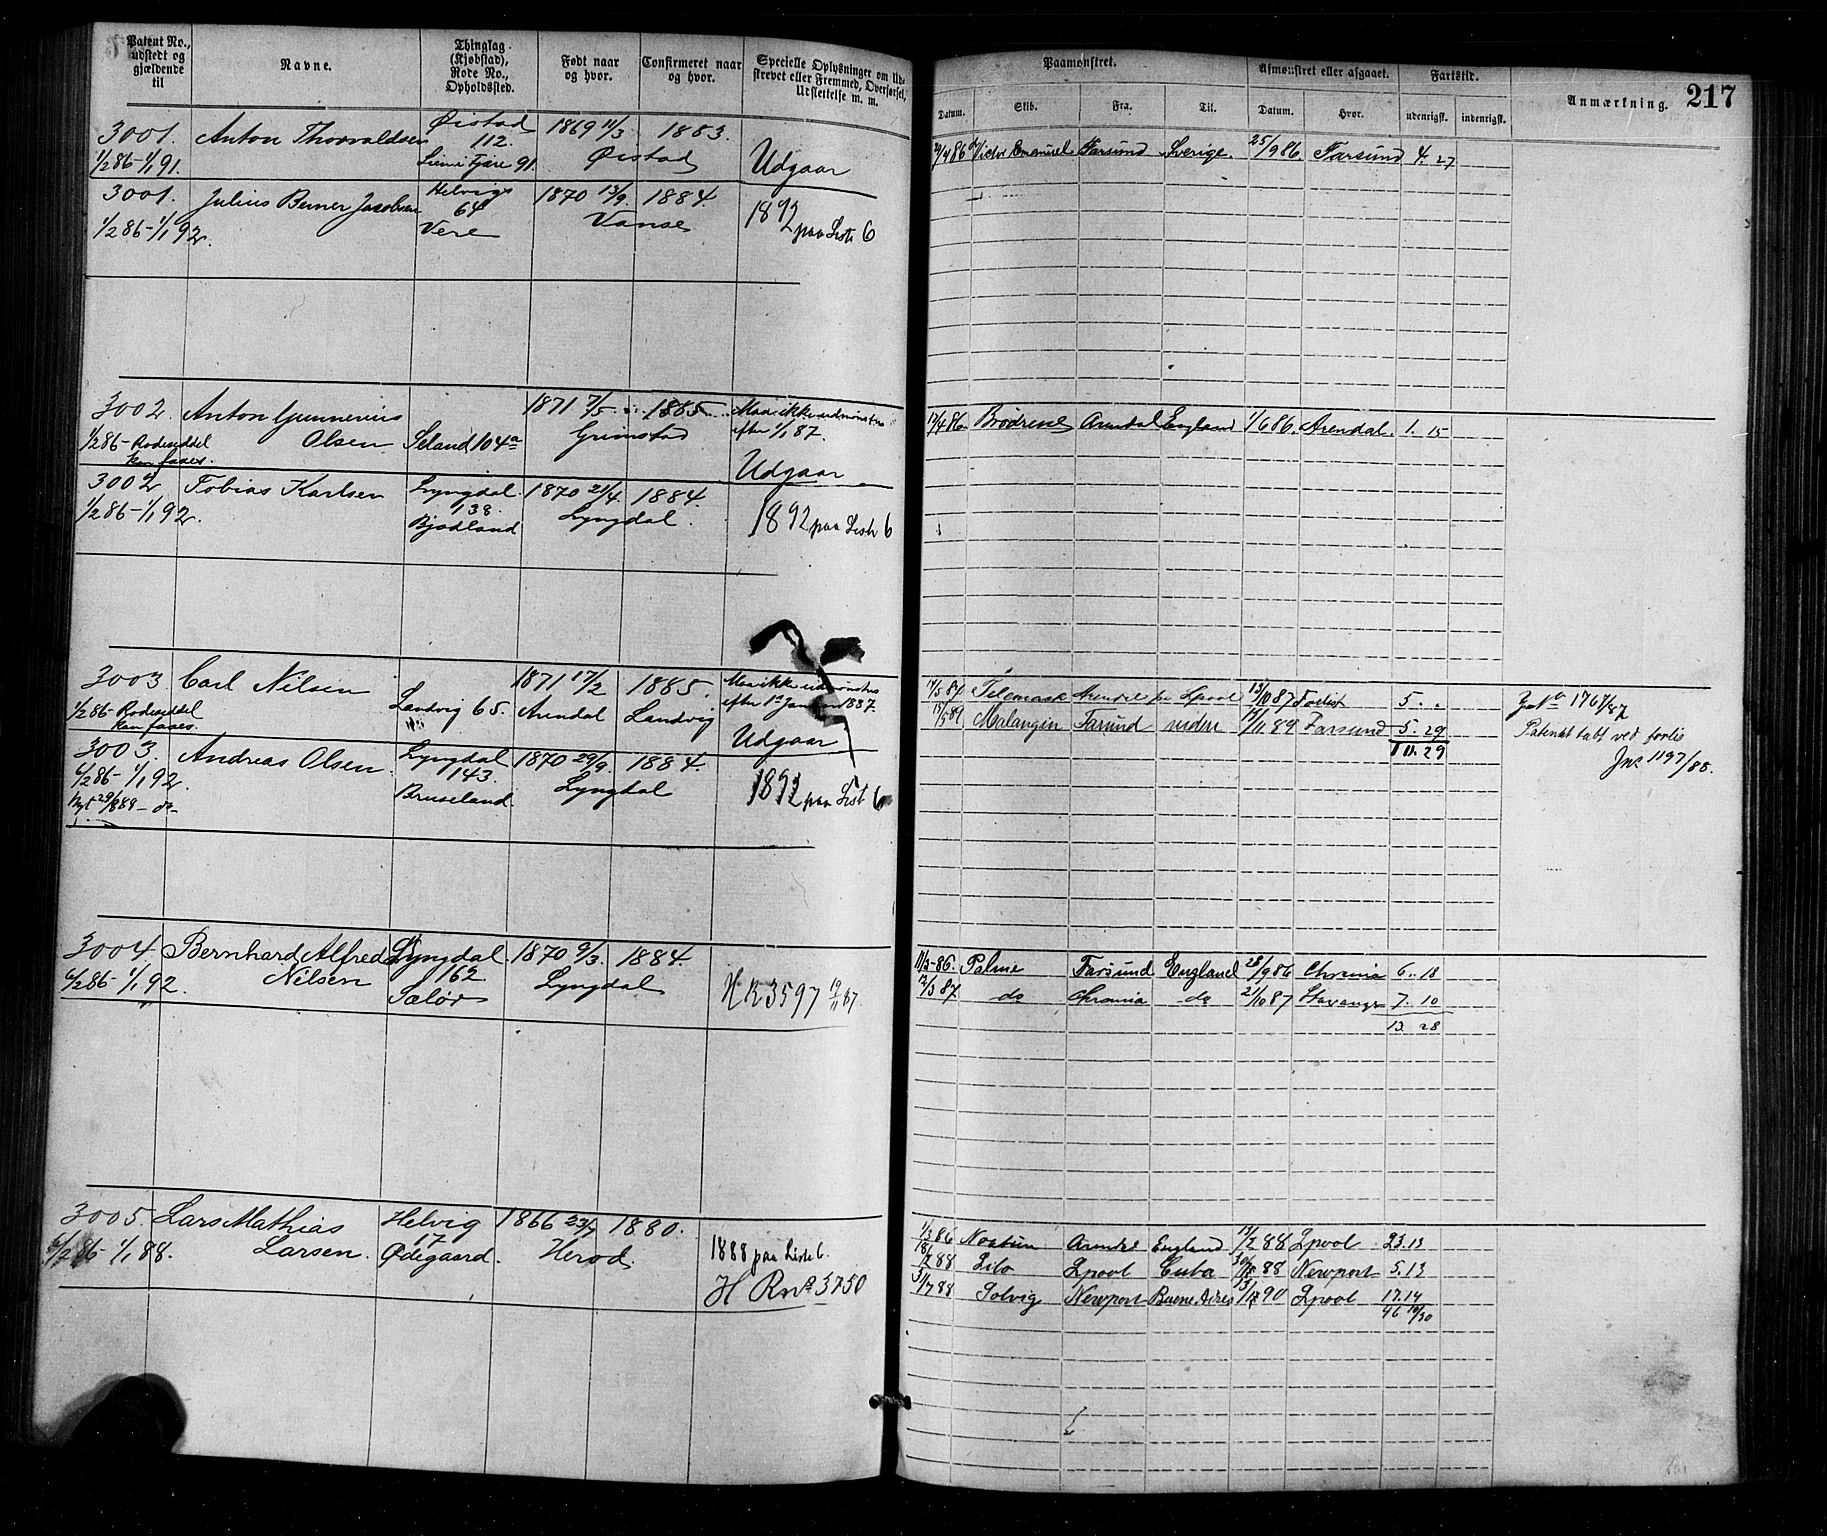 Patent No., udstedt og gjældende til
Navne.
Thinglag (Kjøbstad), Rode No., Opholdssted.
Født naar og hvor.
Confirmeret naar og hvor.
Specielle Oplysninger om Ud-
skrevet eller Fremmed, Overførsel,
Udslettelse m. m.
Paamønstret.
Afmønstret eller afgaaet.
Fartstid.
Anmærkning.
217
Datum.
Skib.
Fra.
Til.
Datum.
Hvor.
udenrigsk.
indenrigsk.
3001. Anton Thorvaldsen Øistad 1869 11/3 1883.
112. Øistad
1/2 86-1/1 91. 91. Udgaar
3001. Julius Berner Jacobsen Helvigs 1870 13/9. 1884.
64 Vanse
1/2 86-1/1 92. Vere 1892 paa Liste 6
3002. Anton Gunnerius 1871 7/5 1885. Maa ikke udmønstres
Olsen Seland 104a Grimstad efter 1/1 87.
1/2 86- Rodeseddel
kan faaes. Udgaar
3002 Tobias Karlsen Lyngdal 1870 21/4. 1884.
138. Lyngdal.
1/2 86-1/1 92. Bjodland 1892 paa Liste 6
3003. Carl Nilsen 1871 17/2 1885. Maa ikke udmønstres
1/2 86- Rodeseddel Landvig 65. Arendal Landvig efter 1ste Januar 1887.
kan faaes. Udgaar
3003. Andreas Olsen. Lyngdal 1870 29/9. 1884.
6/2 86- 1/1 92. 143. Lyngdal
Bruseland. 1892 paa Liste 6
Nyt 29/8 88- do-
3004. Bernhard Alfred Lyngdal. 1870 9/3. 1884.
Nilsen 162 Lyngdal
6/2 86- 1/1 92. Saløv HR 3597 19/11 87.
3005. Lars Mathias Helvig 1866 23/7 1880.
17 Herod.
6/2 86- 1/1 88. Larsen. Ødegaard. 1888 paa Liste 6.
H Rno 3750
Victor Emanuel Farsund Sverige. 25/9 86. Farsund 4. 27
17/4 86 Brødrene Arendal England 1/6 86. Arendal. 1. 15
17/5 87 Telemark Arendal Lpool 13/10 87 Forlist 5. "
15/5 89 Malangen Farsund 14/11 89 Farsund 5. 29
10.29
Jno 1767/87
Patentet tabt ved forlis
Jno 1197/88.
11/3-86. Palme Farsund England 28/9 86 Chrania 6. 18
2/3 87 do Chrania do 21/10 87 Stavanger 7. 10
13. 28
1/3 86 Noatun Arendal England 13/2 88 Lpool 23.13
18/2 88 Lpool Cuba Newport 5.13
31/7 88 Solvig Newport Buenos Aires 90 Lpool 17.14
46 10/30